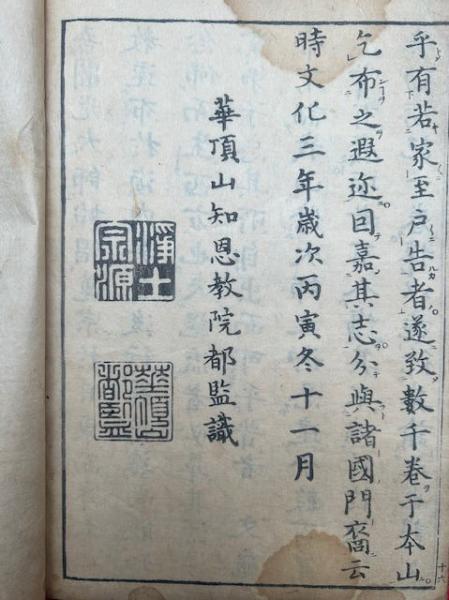 乎有若家至户告者遂致數千卷于夲山
乞布之遐迩囙嘉其志分與諸國門裔云
時文化三年歳次丙寅冬十一月
華頂山知恩教院都監識
淨土
宗源
華頂
都監
十六